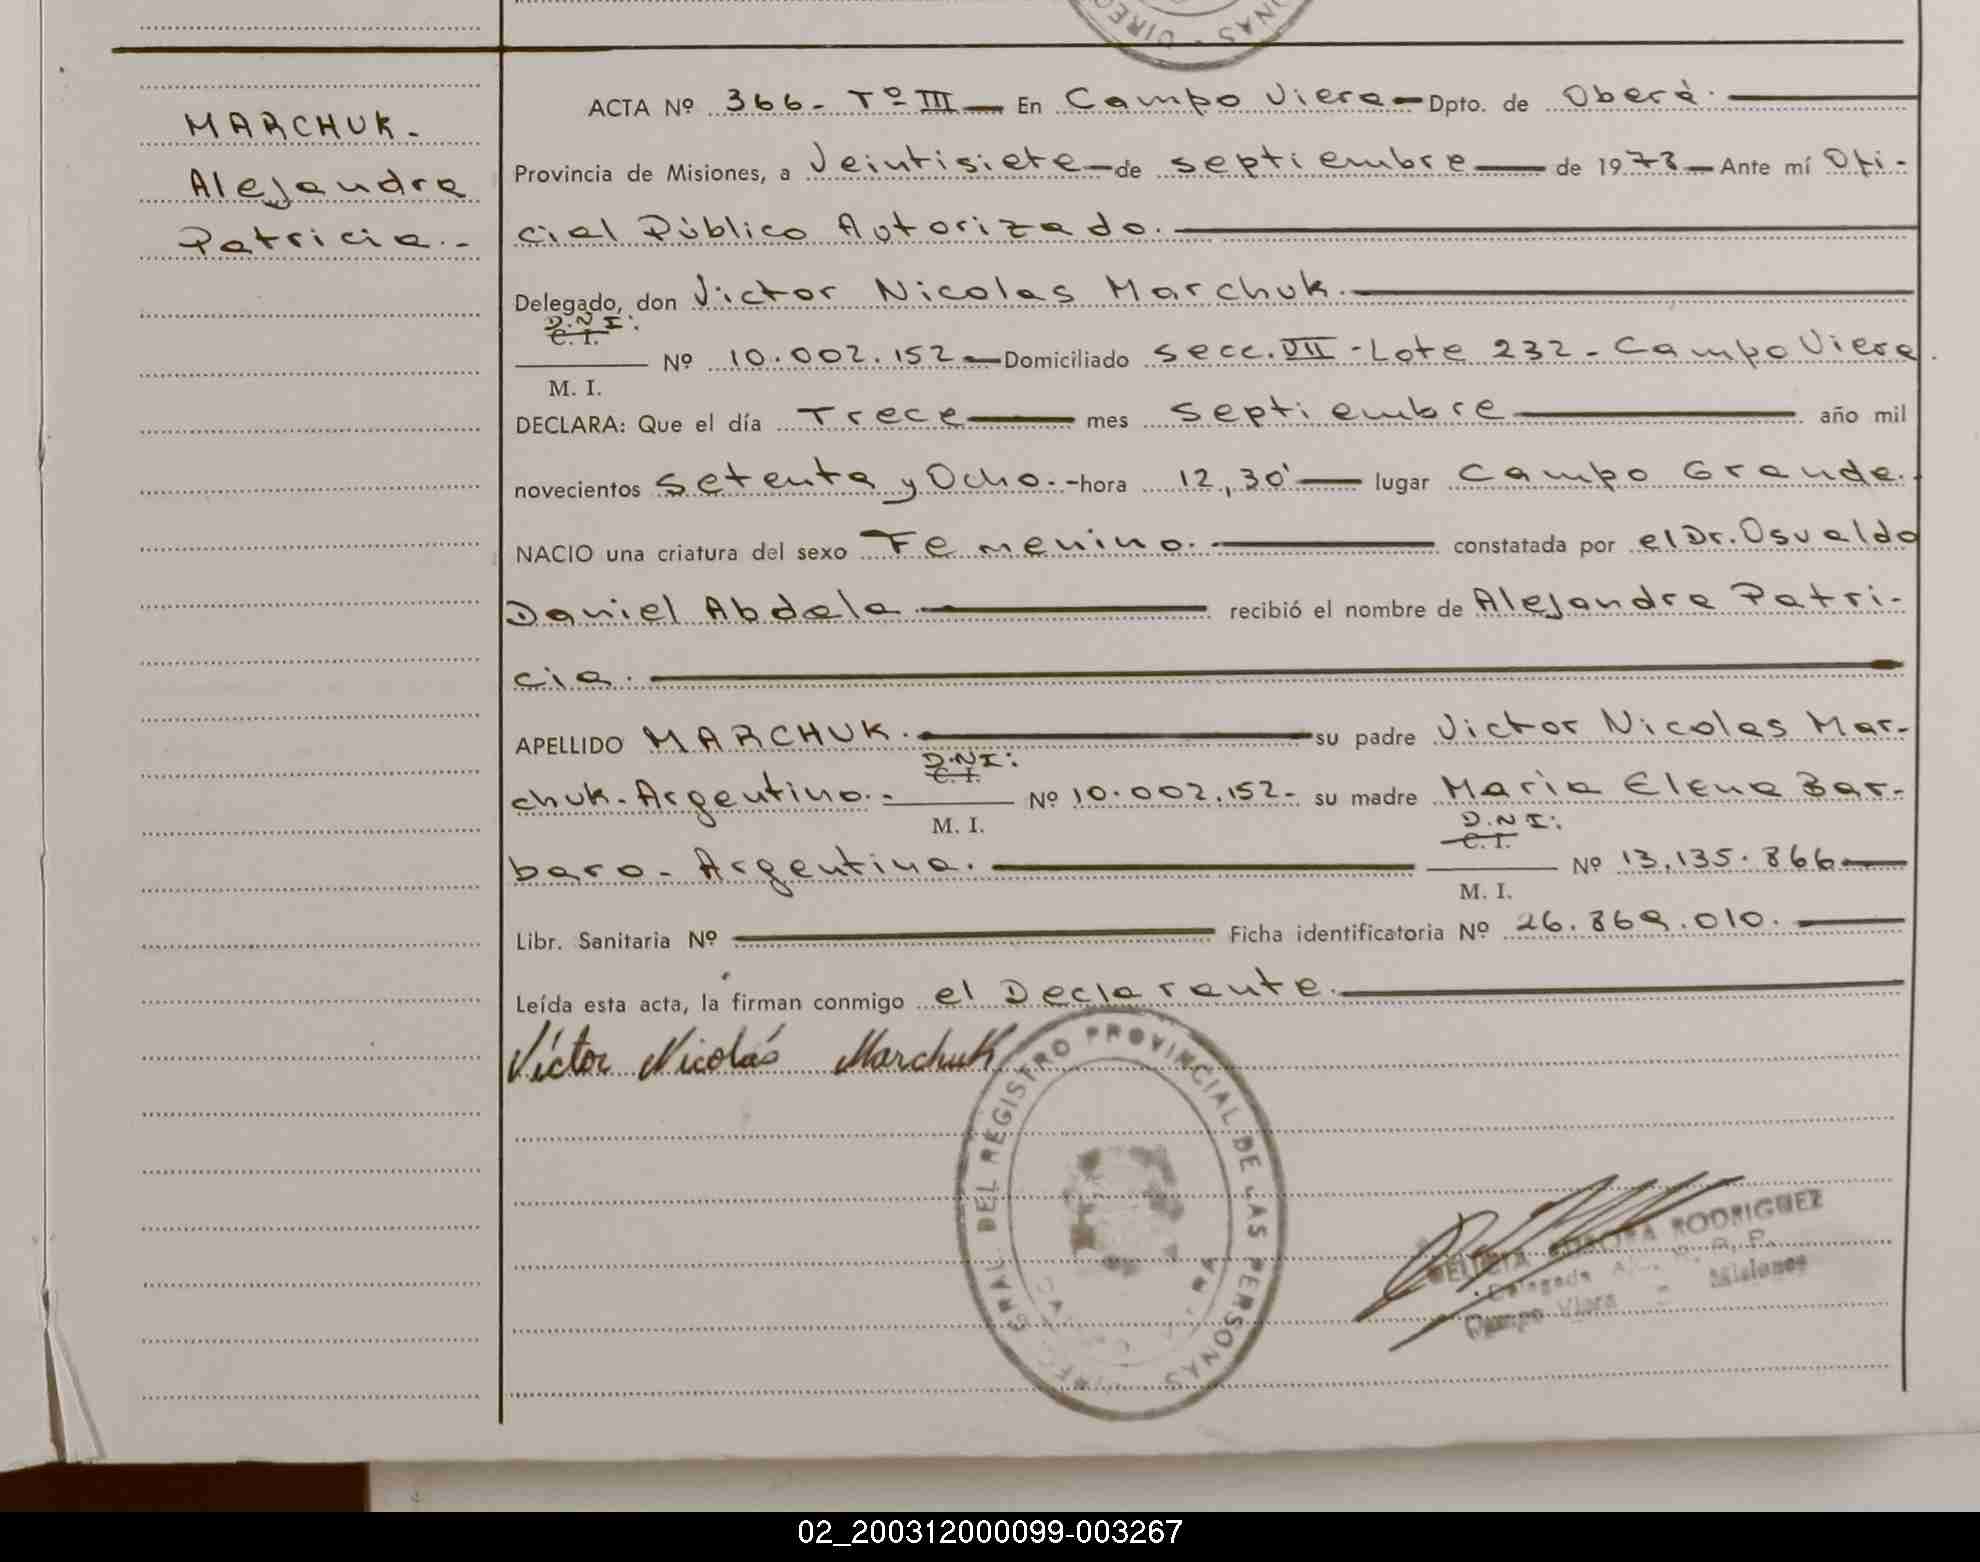 MARCHUK.
Alejandra
Patricia.-
ACTA Nº 366- Tº III — En Campo Viera — Dpto. de Oberá.
Provincia de Misiones, a Veintisiete — de septiembre — de 1978 — Ante mí Ofi-
cial Público Autorizado.
Delegado, don Victor Nicolas Marchuk.
D.N.I:
C. I.
Nº 10.002.152 — Domiciliado secc. VII - Lote 232 - Campo Viera.
M. I.
DECLARA: Que el día Trece — mes septiembre — año mil
novecientos setenta y Ocho.- hora 12,30' — lugar Campo Grande.
NACIO una criatura del sexo Femenino. — constatada por el Dr. Osvaldo
Daniel Abdala — recibió el nombre de Alejandra Patri-
cia.
APELLIDO MARCHUK. — su padre Victor Nicolas Mar-
D.N.I:
C. I.
chuk. Argentino.- Nº 10.002.152- su madre Maria Elena Bar-
M. I.
D.N.I:
C. I.
baro - Argentina. — Nº 13.135.866 —
M. I.
Libr. Sanitaria Nº — Ficha identificatoria Nº 26.869.010. —
Leída esta acta, la firman conmigo el Declarante.
Víctor Nicolás Marchuk
GRAL. DEL REGISTRO PROVINCIAL DE LAS PERSONAS
RODRIGUEZ
Delegada
Campo Viera - Misiones
02_200312000099-003267